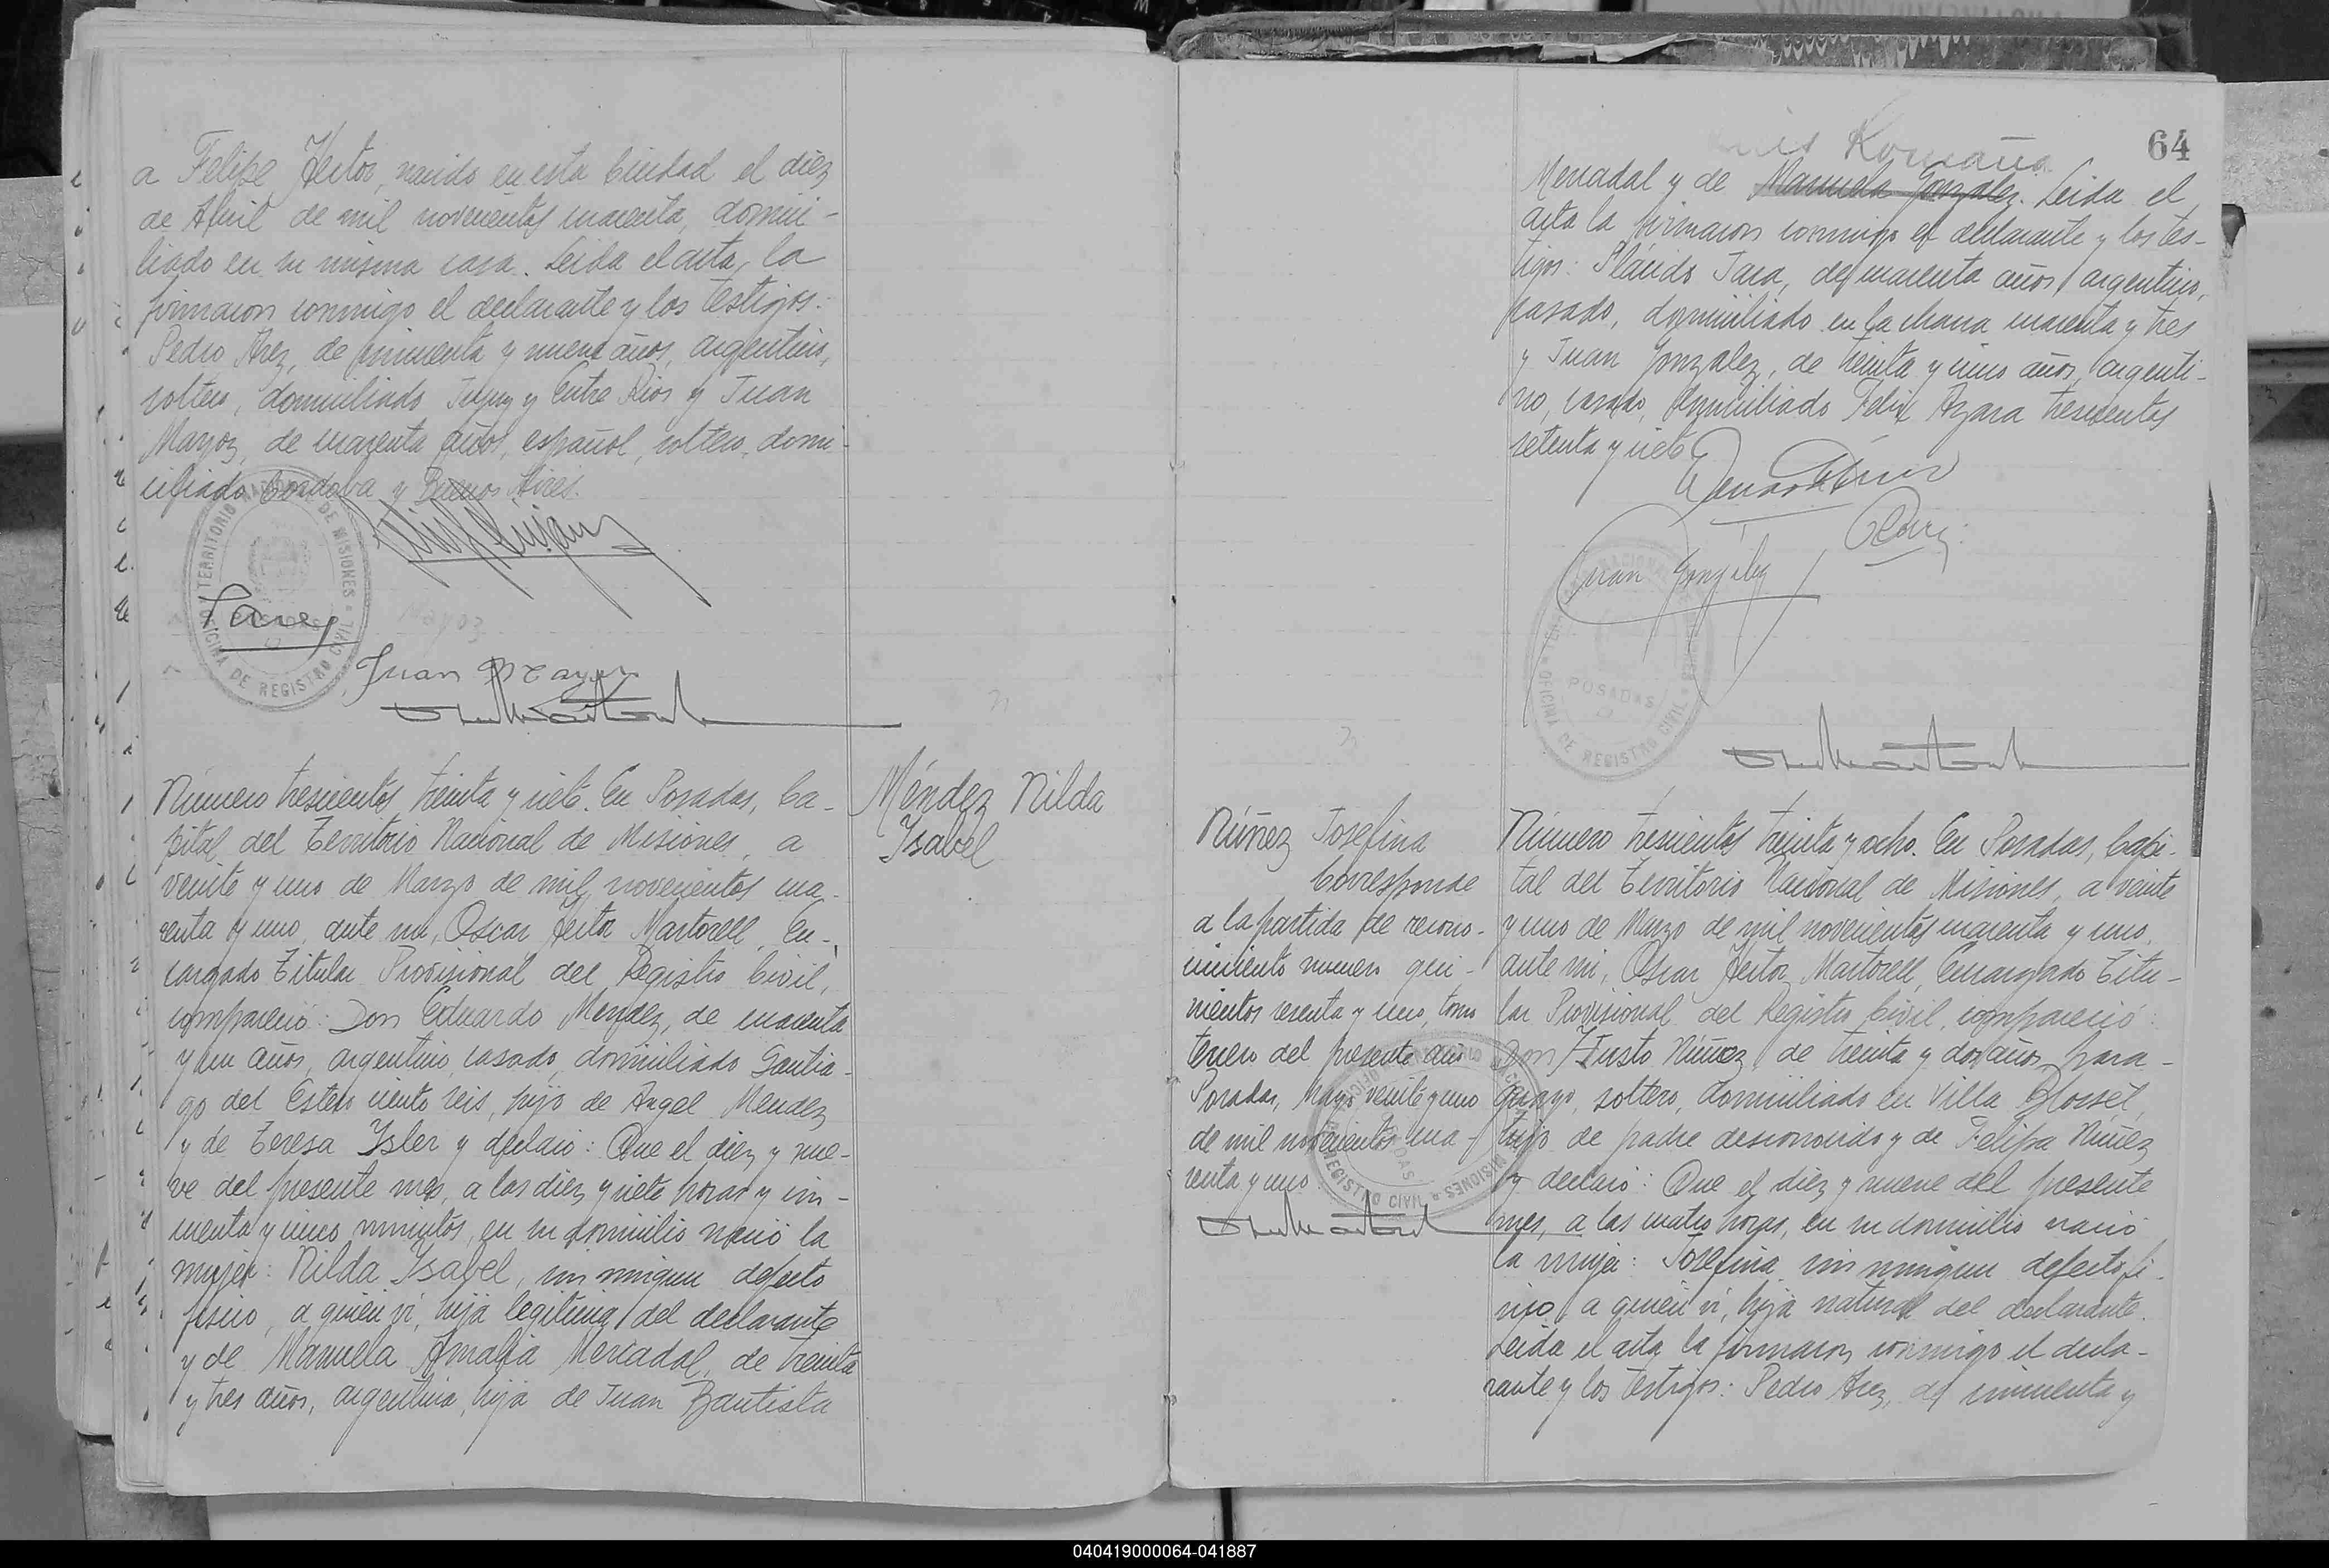 a Felipe Hector, nacido en esta Ciudad el diez
de Abril de mil novecientos cuarenta, domici-
liado en su misma casa. Leida el acta, la
firmaron conmigo el declarante y los testigos:
Pedro Arez, de cincuenta y nueve años, argentino,
soltero, domiciliado Jujuy y Entre Rios y Juan
Mayoz, de cuarenta años, español, soltero, domi-
ciliado Cordoba y Buenos Aires.
TERRITORIO NACIONAL DE MISIONES
OFICINA DE REGISTRO CIVIL
POSADAS
Mayoz
Juan Mayoz
Número trescientos treinta y siete. En Posadas, Ca-
pital del Territorio Nacional de Misiones, a
veinte y uno de Marzo de mil novecientos cua-
renta y uno, ante mi, Oscar Hector Martorell, En-
cargado Titular Provisional del Registro Civil,
compareció: Don Eduardo Mendez, de cuarenta
y un años, argentino, casado, domiciliado Santia-
go del Estero ciento seis, hijo de Angel Mendez
y de Teresa Isler y declaró: Que el diez y nue-
ve del presente mes, a las diez y siete horas y cin-
cuenta y cinco minutos, en su domicilio nació la
mujer: Nilda Isabel, sin ningun defecto
fisico, a quien vi, hija legitima del declarante
y de Manuela Amalia Mercadal, de treinta
y tres años, argentina, hija de Juan Bautista
Méndez Nilda
Isabel
64
Romaña
Mercadal y de Manuela Gonzalez. Leida el
acta la firmaron conmigo el declarante y los tes-
tigos: Plácido Jara, de cuarenta años, argentino,
casado, domiciliado en la chacra cuarenta y tres
y Juan Gonzalez, de treinta y cinco años, argenti-
no, casado, domiciliado Felix Azara trescientos
setenta y siete
Juan Gonzalez
POSADAS
OFICINA DE REGISTRO CIVIL
Núñez Josefina
Corresponde
a la partida de recono-
cimiento numero qui-
nientos sesenta y uno, tomo
tercero del presente año
Posadas, Mayo veinte y uno
de mil novecientos cua-
renta y uno
Número trescientos treinta y ocho. En Posadas, Capi-
tal del Territorio Nacional de Misiones, a veinte
y uno de Marzo de mil novecientos cuarenta y uno,
ante mi, Oscar Hector Martorell, Encargado Titu-
lar Provisional del Registro Civil, compareció:
Don Justo Núñez, de treinta y dos años, para-
guayo, soltero, domiciliado en Villa Blosset,
hijo de padre desconocido y de Felipa Núñez
y declaró: Que el diez y nueve del presente
mes, a las cuatro horas, en su domicilio nació
la mujer: Josefina, sin ningun defecto fi-
sico, a quien vi, hija natural del declarante.
Leida el acta la firmaron conmigo el decla-
rante y los testigos: Pedro Arez, de cincuenta y
040419000064-041887